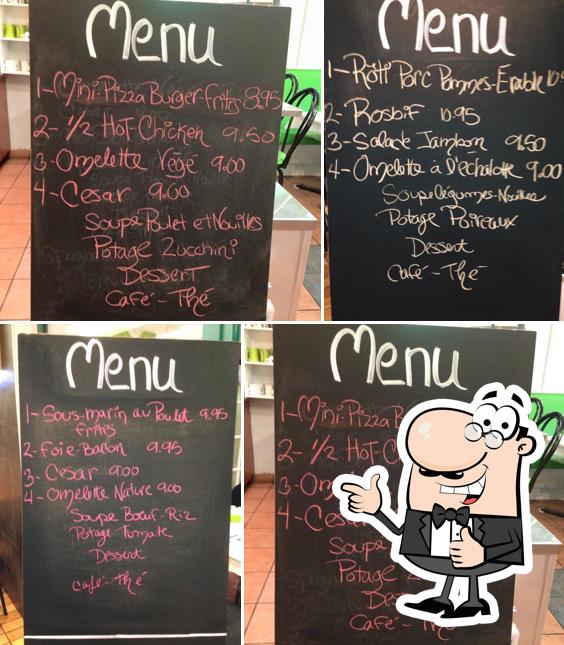 Menu
1-Mini-Pizza Burger-frites 8.95
2- 1/2 Hot-Chicken 9.50
3-Omelette Végé 9.00
4-Cesar 9.00
Soupe Poulet et Nouilles
Potage Zucchini
Dessert
Café - Thé
Menu
1-Rôti Porc Pommes-Érable
2- Rosbif 10.95
3-Salade Jambon 9.50
4-Omelette à l'échalotte 9.00
Soupe légumes-Nouilles
Potage Poireaux
Dessert
Café - Thé
Menu
1- Sous-marin au Poulet 9.95
frites
2- Foie-Bacon 9.95
3- Cesar 9.00
4- Omelette Nature 9.00
Soupe Boeuf-Riz
Potage Tomate
Dessert
café - Thé
Menu
1-Mini-Pizza B
2- 1/2 Hot-C
3-Om
4-Cesa
Soupe
Potage Z
Des
Café - Th